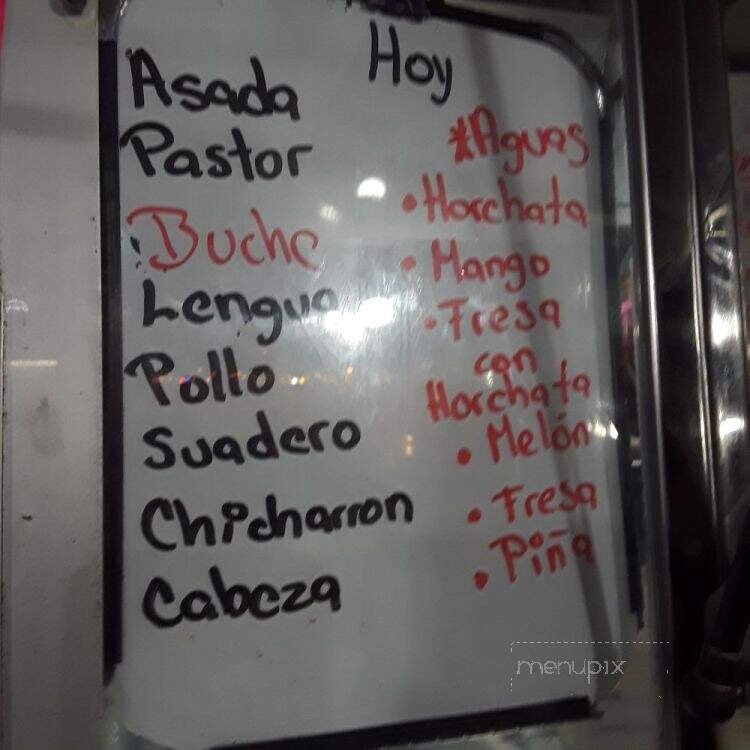 Hoy
Asada
Pastor
Buche
Lengua
Pollo
Suadero
Chicharron
Cabeza
*Aguas
• Horchata
• Mango
• Fresa
con
Horchata
• Melón
• Fresa
• Piña
menupix